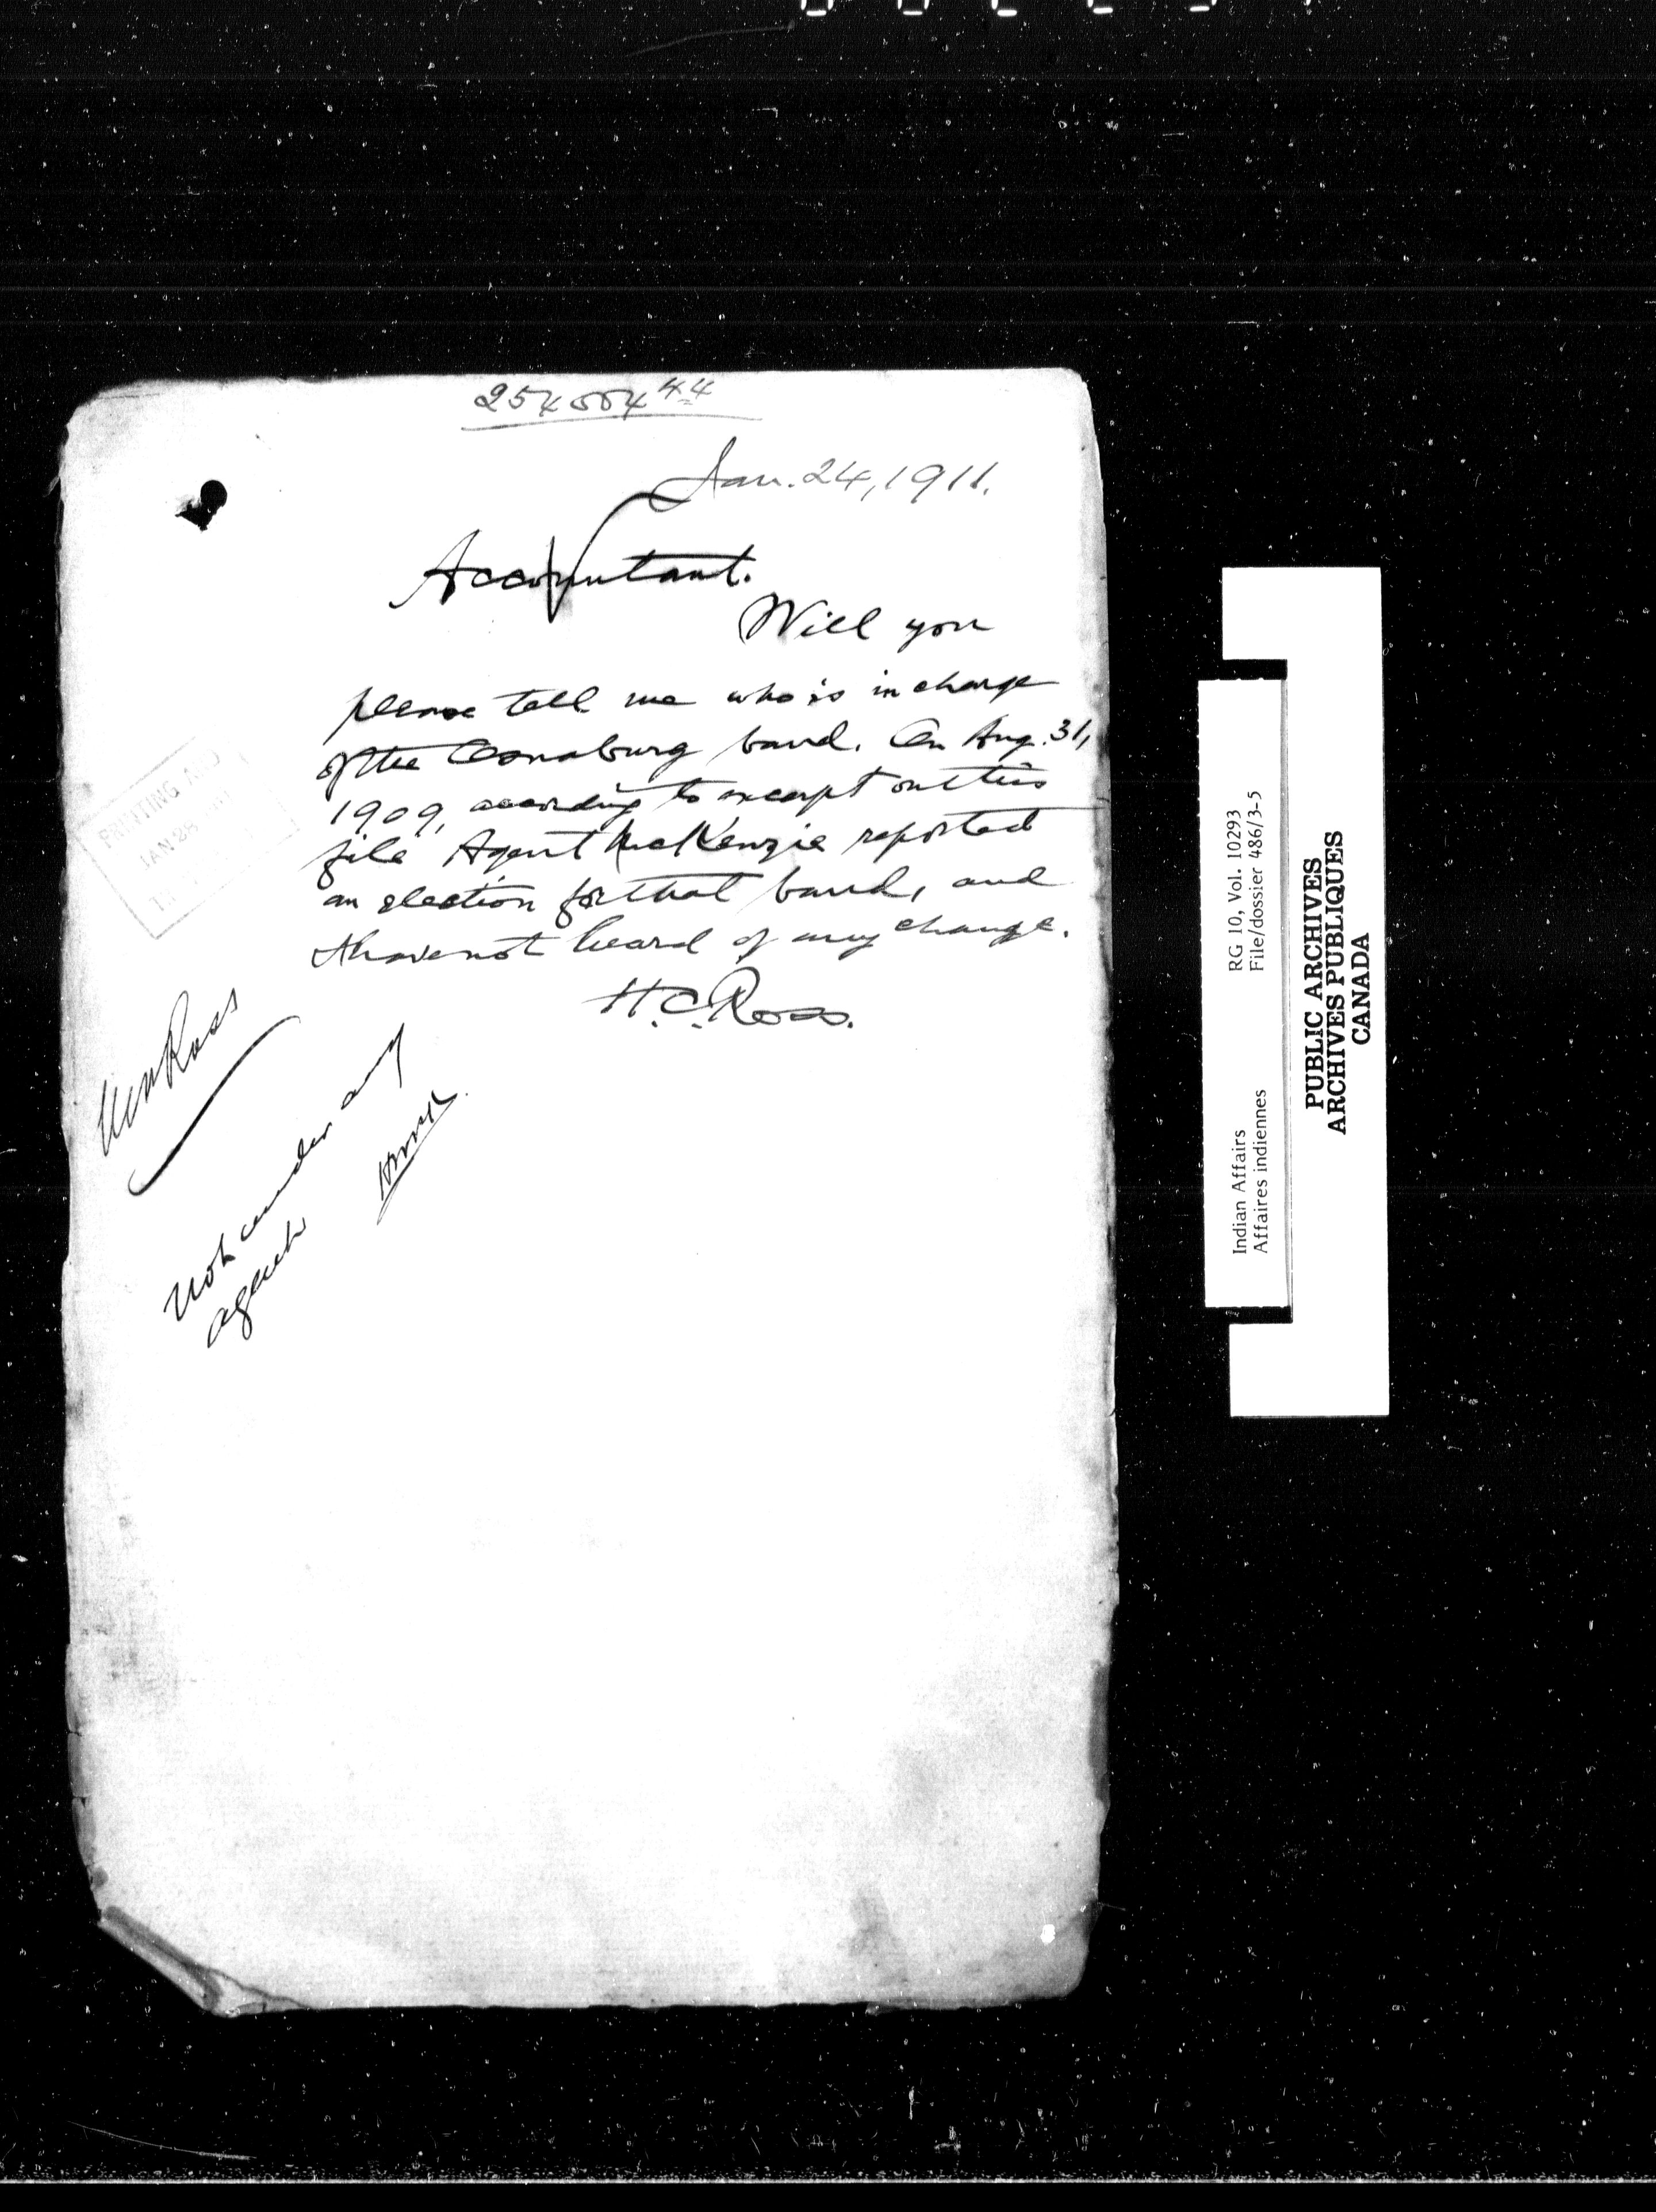 254004 44
Jan. 24, 1911.
Accountant.
Will you
please tell me who is in charge
of the Osnaburg band. On Aug. 31,
1909, according to excerpt on this
file Agent MacKenzie reported
an election for that band, and
I have not heard of any change.
H.C. Ross.
PRINTING AND
JAN 28
Ross
Not under any
agent
Indian Affairs RG 10, Vol. 10293
Affaires indiennes File/dossier 486/3-5
PUBLIC ARCHIVES
ARCHIVES PUBLIQUES
CANADA